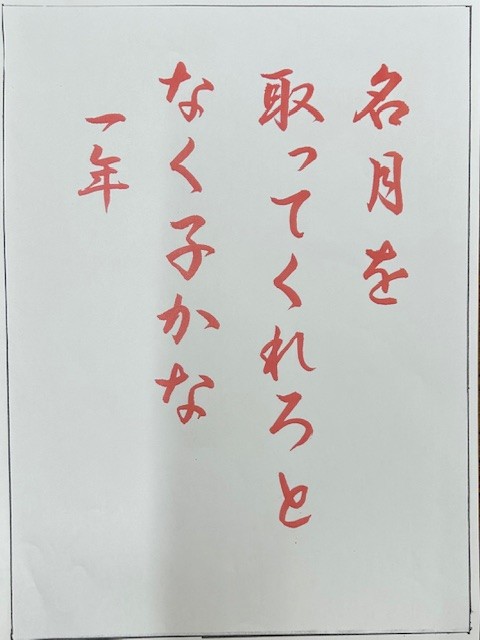 名月を
取ってくれろと
なく子かな
一年